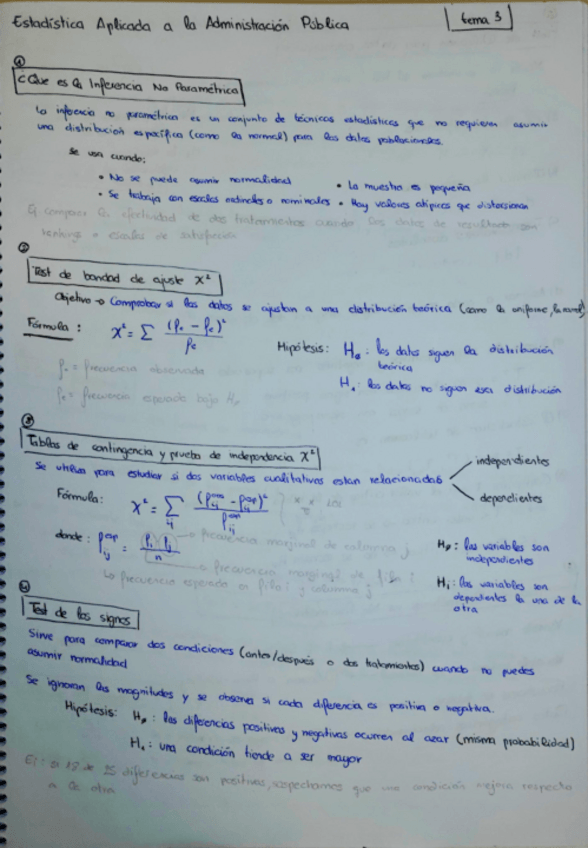 Estadística Aplicada a la Administración Pública
tema 3
1
¿Que es la Inferencia No Paramétrica
La inferencia no paramétrica es un conjunto de técnicas estadísticas que no requieren asumir
una distribución específica (como la normal) para los datos poblacionales.
Se usa cuando:
• No se puede asumir normalidad • La muestra es pequeña
• Se trabaja con escalas ordinales o nominales • Hay valores atípicos que distorsionan
Ej comparar la efectividad de dos tratamientos cuando los datos de resultado son
rankings o escalas de satisfacción
2
Test de bondad de ajuste χ²
Objetivo → Comprobar si los datos se ajustan a una distribución teórica (como la uniforme, la normal)
Fórmula: χ² = Σ (fₒ - fₑ)² / fₑ
Hipótesis: H₀: los datos siguen la distribución
teórica
fₒ = frecuencia observada
H₁: los datos no siguen esa distribución
fₑ = frecuencia esperada bajo H₀
3
Tablas de contingencia y prueba de independencia χ²
Se utiliza para estudiar si dos variables cualitativas estan relacionadas
independientes
dependientes
Fórmula: χ² = Σ ij
donde:
→ frecuencia marginal de columna j
→ frecuencia marginal de fila i
↳ frecuencia esperada en fila i y columna j
H₀: las variables son
independientes
H₁: las variables son
dependientes la una de la
otra
4
Test de los signos
Sirve para comparar dos condiciones (antes/después o dos tratamientos) cuando no puedes
asumir normalidad
Se ignoran las magnitudes y se observa si cada diferencia es positiva o negativa.
Hipótesis: H₀: las diferencias positivas y negativas ocurren al azar (misma probabilidad)
H₁: una condición tiende a ser mayor
Ej: si 18 de 25 diferencias son positivas, sospechamos que una condición mejora respecto
a la otra